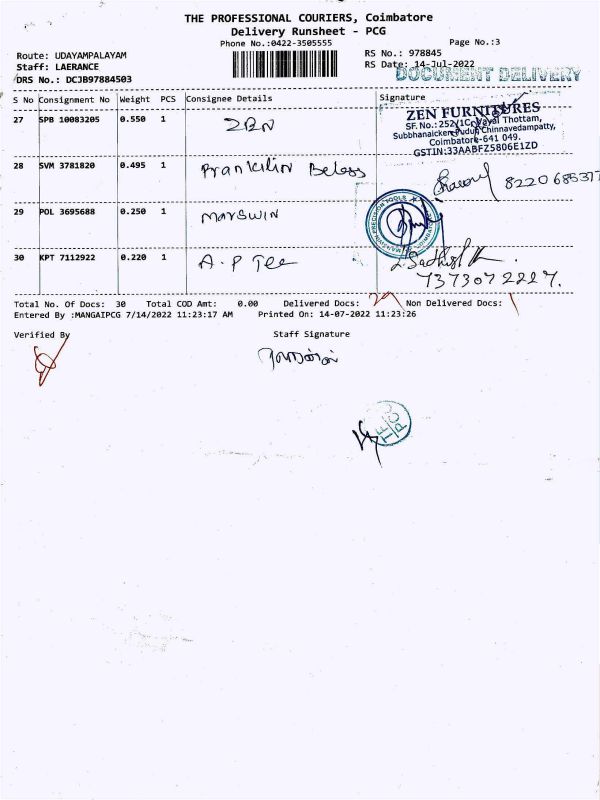 THE PROFESSIONAL COURIERS, Coimbatore
Delivery Runsheet - PCG
Phone No.:0422-3505555
Page No.:3
Route: UDAYAMPALAYAM
RS No.: 978845
Staff: LAERANCE
RS Date: 14-Jul-2022
DOCUMENT DELIVERY
DRS No.: DCJB97884503
S No Consignment No Weight PCS Consignee Details Signature
27 SPB 10083205 0.550 1 ZEN
ZEN FURNITURES
SF. No.: 252/1C, Vayal Thottam,
Subbhanaicken Pudur, Chinnavedampatty,
Coimbatore-641 049.
GSTIN:33AABFZ5806E1ZD
28 SVM 3781820 0.495 1
29 POL 3695688 0.250 1 Marswin
PRECISION TOOLS
COIMBATORE
30 KPT 7112922 0.220 1 A.P Tee
7373072227.
Total No. Of Docs: 30 Total COD Amt: 0.00 Delivered Docs: 29 Non Delivered Docs: 1
Entered By :MANGAIPCG 7/14/2022 11:23:17 AM Printed On: 14-07-2022 11:23:26
Verified By Staff Signature